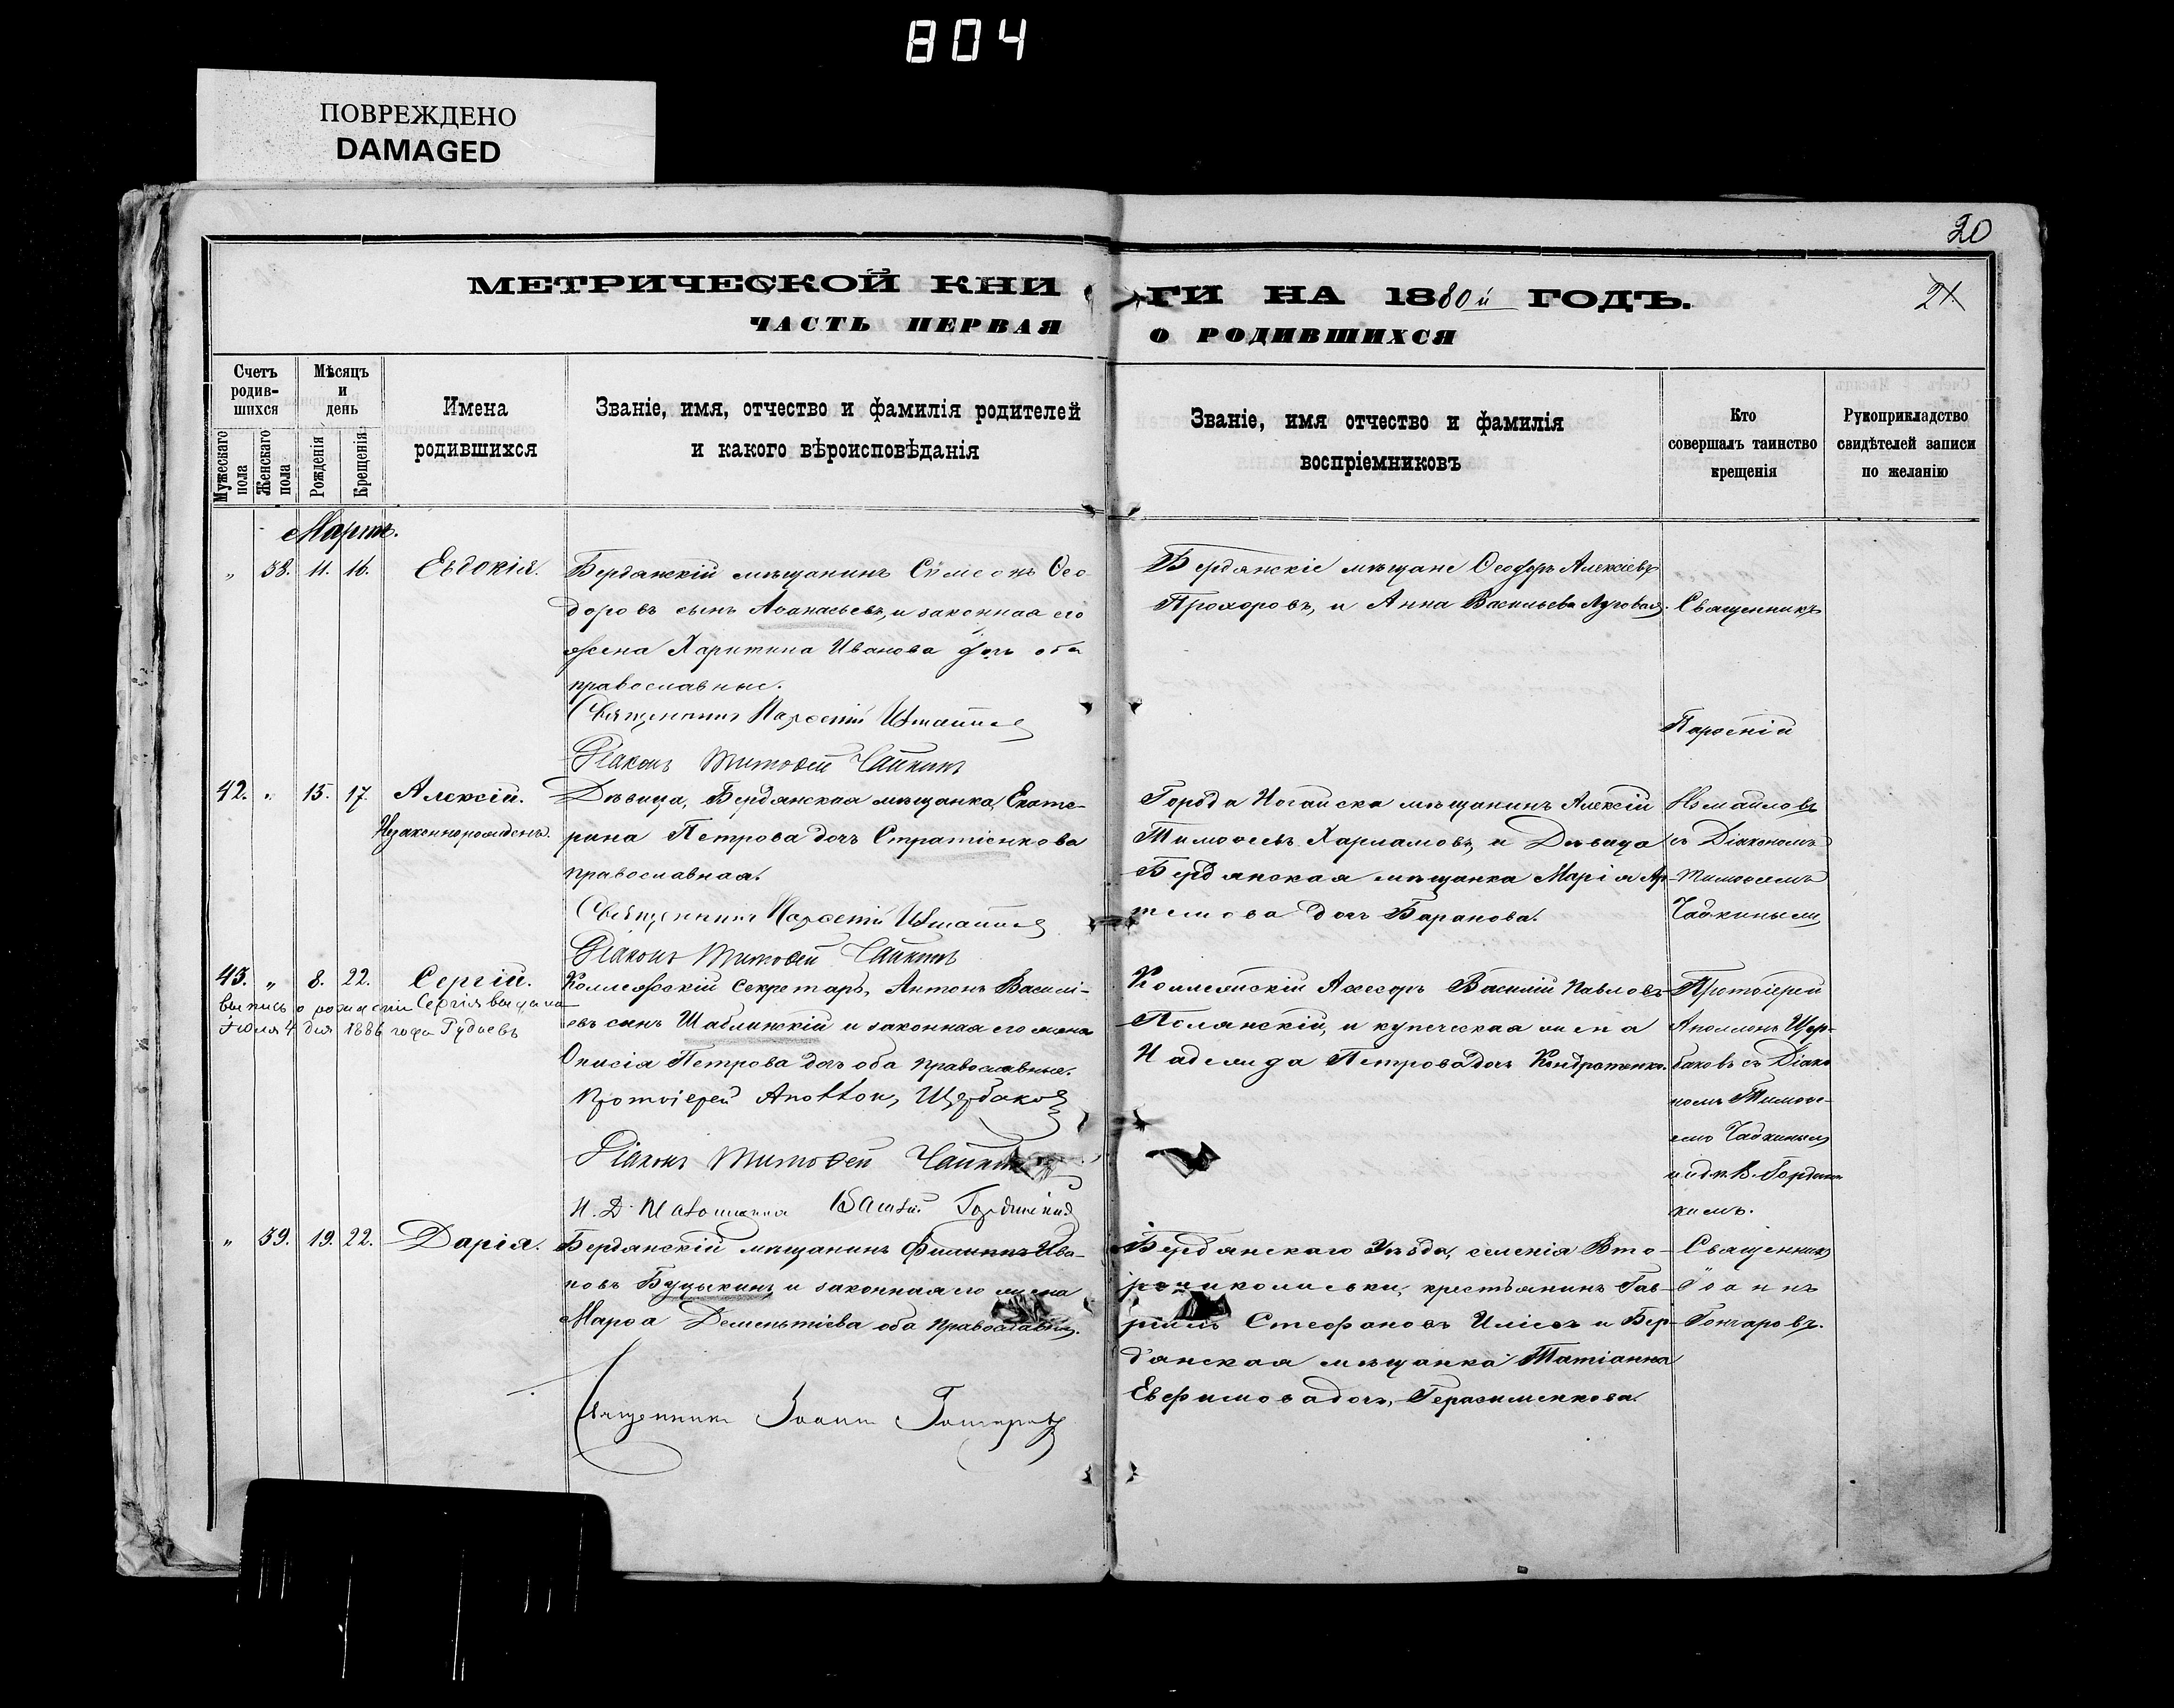 804
ПОВРЕЖДЕНО
DAMAGED
20
МЕТРИЧЕСКОЙ КНИ
ГИ НА 1880й ГОДЪ.
21
ЧАСТЬ ПЕРВАЯ
О РОДИВШИХСЯ
Счетъ родив-шихся
Мѣсяцъ и день
Мужескаго пола
Женскаго пола
Рожденія
Крещенія
Имена
родившихся
Званіе, имя, отчество и фамилія родителей
и какого вѣроисповѣданія
Званіе, имя отчество и фамилія
воспріемниковъ
Кто
совершалъ таинство
крещенія
Рукоприкладство
свидѣтелей записи
по желанію
Мартъ.
„ 38. 11. 16. Евдокія.
Бердянскій мѣщанинъ Симеонъ Ѳео-
доровъ сынъ Аѳанасьевъ, и законная его
жена Харитина Иванова дочь оба
православные.
Священникъ Парѳеній
Діаконъ Тимоѳей Чайкинъ
Бердянскіе мѣщане Ѳеодоръ Алексіевъ
Прохоровъ, и Анна Васильева Луговая.
Священникъ
Парѳеній
Измайловъ
съ Діакономъ
Тимоѳеемъ
Чайкинымъ
42. „ 15. 17. Алексій.
Незаконнорожденъ.
Дѣвица, Бердянская мѣщанка, Екате-
рина Петрова дочь Стратіенкова
православная.
Священникъ Парѳеній
Діаконъ Тимоѳей Чайкинъ
Города Ногайска мѣщанинъ Алексій
Тимоѳеевъ Харламовъ, и Дѣвица
Бердянская мѣщанка Марія Ар-
темова дочь Баранова.
43. „ 8. 22. Сергій.
выпись о рожденіи Сергія выдана
Іюля 4 дня 1886 года
Коллежскій Секретарь, Антонъ Василі-
евъ сынъ Шаблинскій и законная его жена
Онисія Петрова дочь оба православные.
Протоіерей Аполлонъ Щербаковъ
Діаконъ Тимоѳей Чайкинъ
Коллежскій Асесоръ Василій Павловъ
Полянскій, и купеческая жена
Надежда Петрова дочь Кондратенко.
Протоіерей
Аполлонъ Щер-
баковъ съ Діако
номъ Тимоѳе-
емъ Чайкинымъ
„ 39. 19. 22. Дарія.
Бердянскій мѣщанинъ Филиппъ Ива-
новъ Буцыкинъ и законная его жена
Марѳа Дементіева оба православны.
Священникъ Іоаннъ Гончаровъ
Бердянскаго Уѣзда, селенія Вто-
роникольска, крестьянинъ Гав-
ріилъ Стефановъ и Бер-
дянская мѣщанка Татіанна
Евфимова дочь, Герасименкова.
Священникъ
Іоаннъ
Гончаровъ.